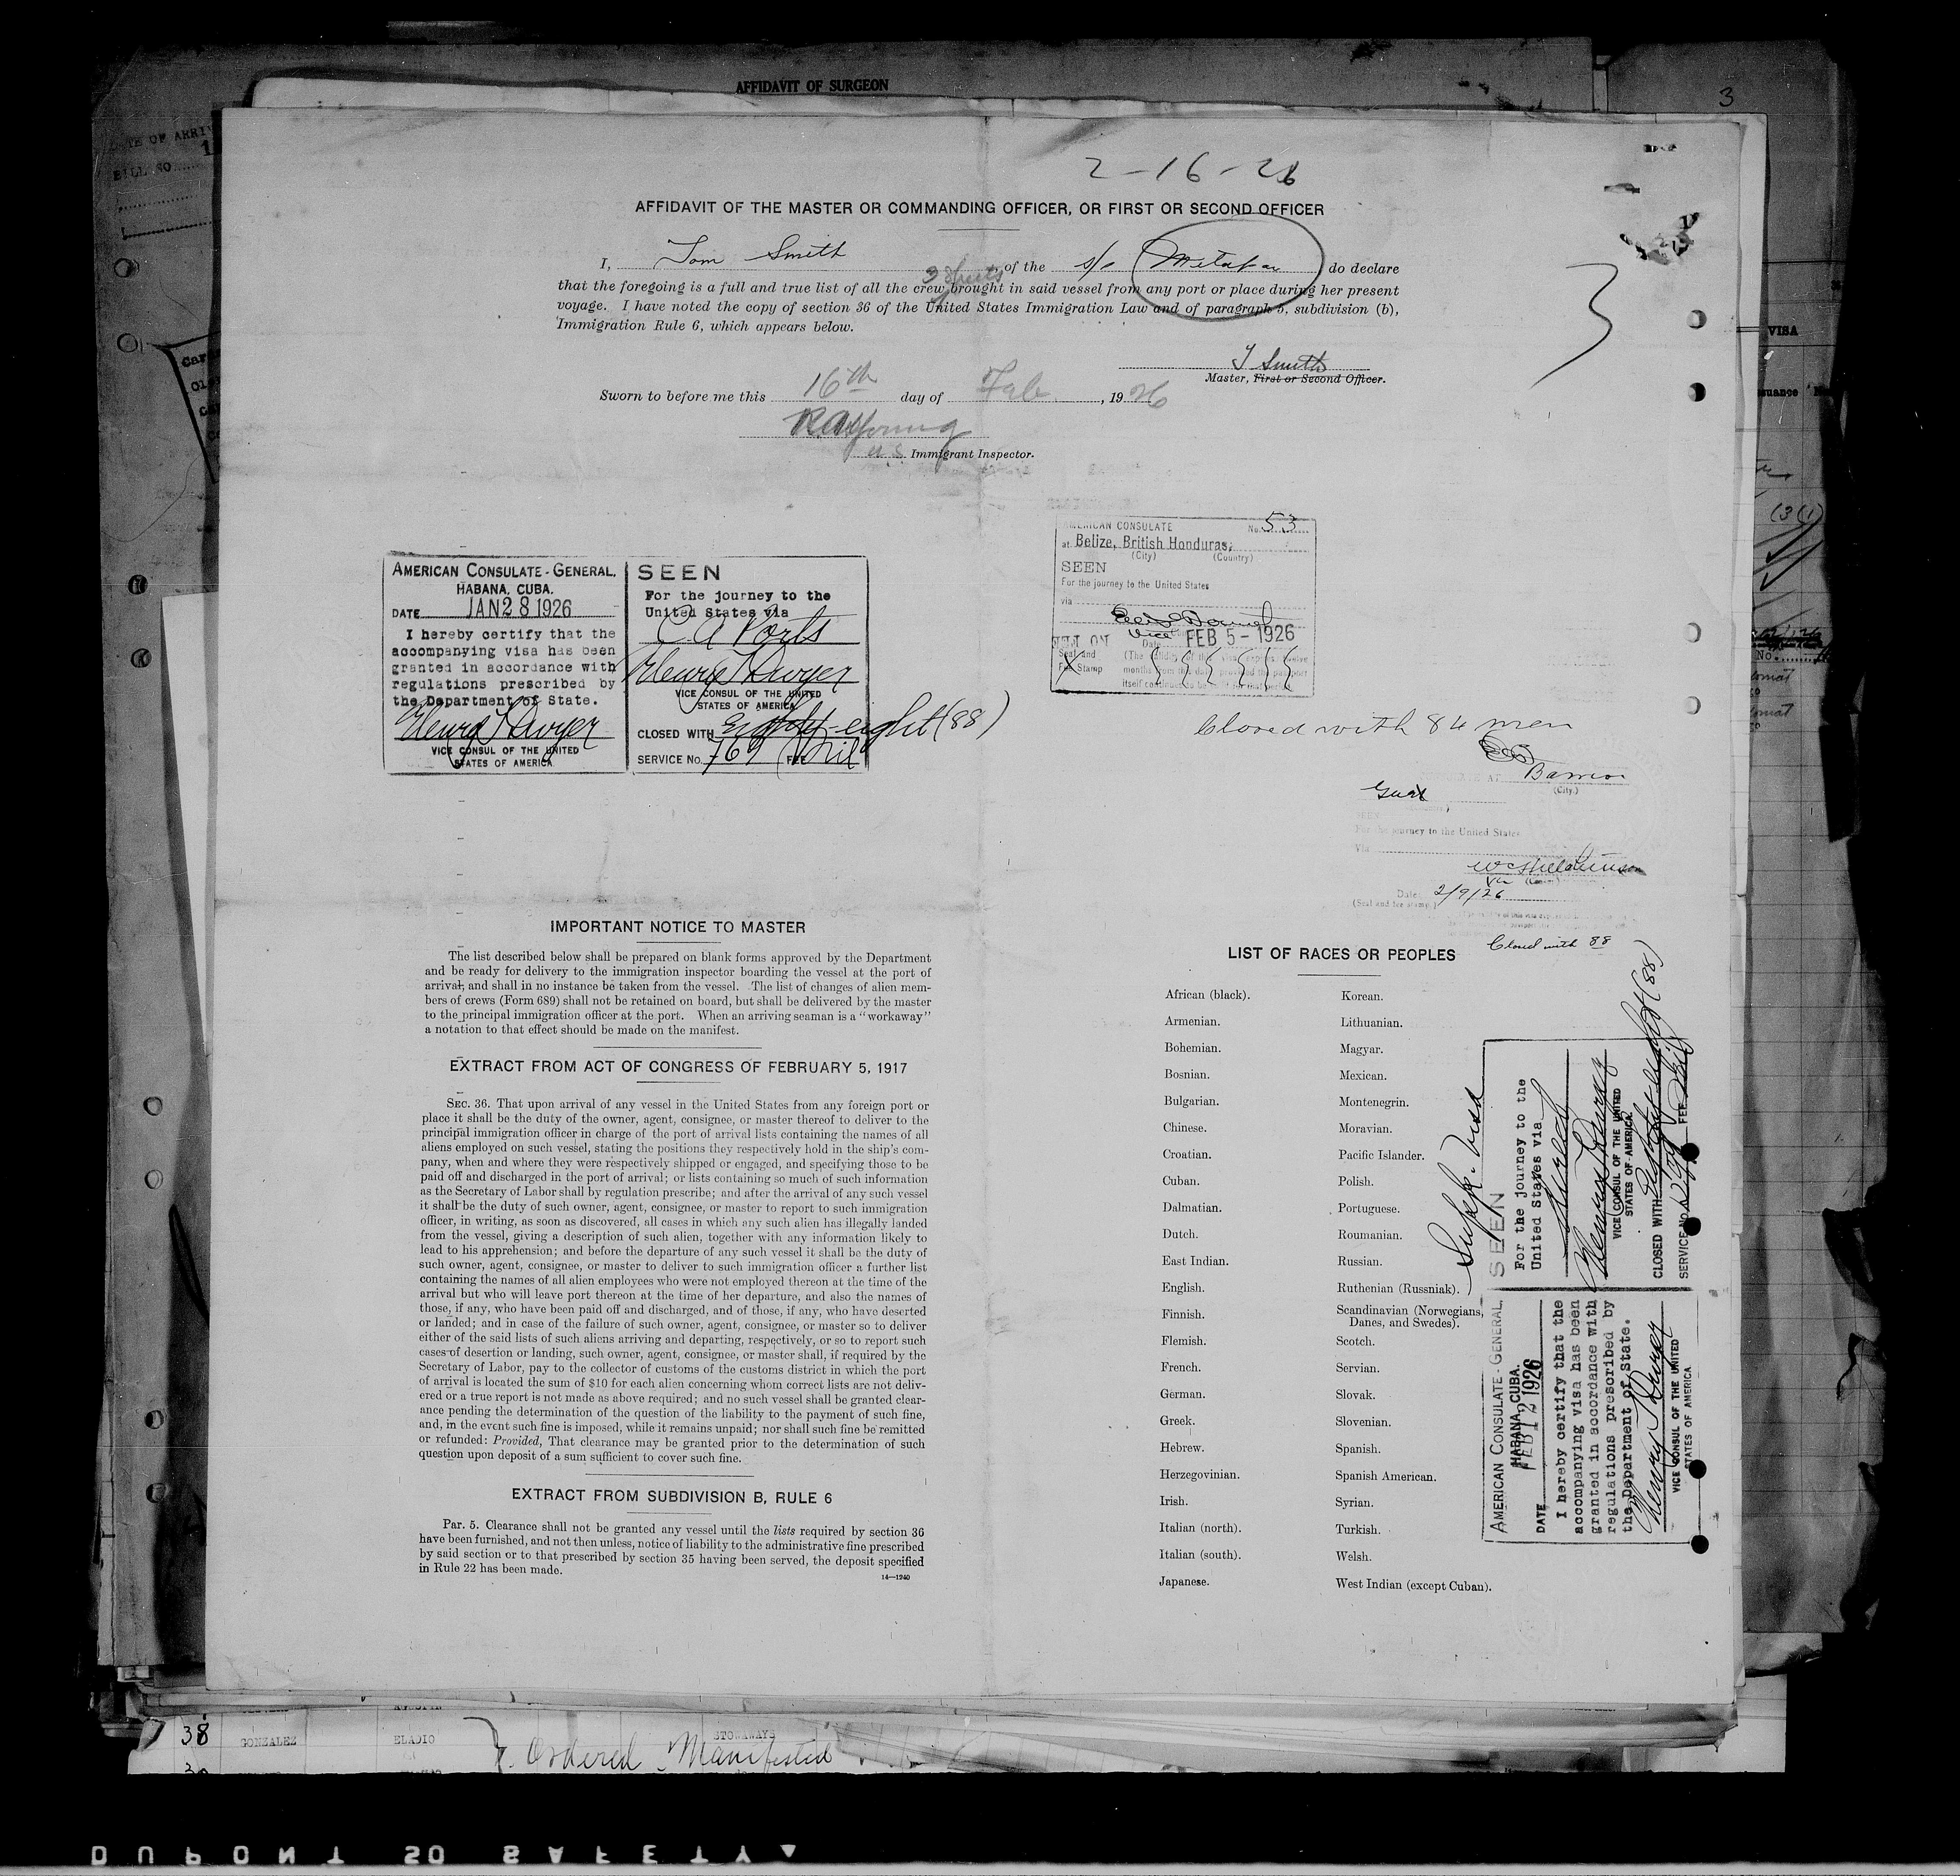 AFFIDAVIT OF SURGEON
3
2-16-26
AFFIDAVIT OF THE MASTER OR COMMANDING OFFICER, OR FIRST OR SECOND OFFICER
I, Tom Smith of the s/s Metapan do declare
3 sheets
that the foregoing is a full and true list of all the crew brought in said vessel from any port or place during her present
voyage. I have noted the copy of section 36 of the United States Immigration Law and of paragraph 5, subdivision (b),
Immigration Rule 6, which appears below.
3
T Smith
Master, First or Second Officer.
Sworn to before me this 16th day of Feb, 1926
R.A. Young
U.S. Immigrant Inspector.
AMERICAN CONSULATE-GENERAL,
HABANA, CUBA.
DATE JAN 28 1926
I hereby certify that the
accompanying visa has been
granted in accordance with
regulations prescribed by
the Department of State.
Henry T Dwyer
VICE CONSUL OF THE UNITED
STATES OF AMERICA
SEEN
For the journey to the
United States via
C A Ports
Henry T Dwyer
VICE CONSUL OF THE UNITED
STATES OF AMERICA
CLOSED WITH Eighty-eight (88)
SERVICE No. 769 FEE Nil
AMERICAN CONSULATE No. 53
at Belize, British Honduras,
(City) (Country)
SEEN
For the journey to the United States
via
Vice
Date FEB 5 - 1926
Seal and
Fee Stamp
(The validity of this visa expires twelve
months from this date provided the passport
itself continues to be valid for that period.
Closed with 84 men
Barrios
(City.)
Guat
SEEN
For the journey to the United States
Via
Date 2/9/26
(Seal and fee stamp.)
Closed with 88
IMPORTANT NOTICE TO MASTER
The list described below shall be prepared on blank forms approved by the Department
and be ready for delivery to the immigration inspector boarding the vessel at the port of
arrival, and shall in no instance be taken from the vessel. The list of changes of alien mem-
bers of crews (Form 689) shall not be retained on board, but shall be delivered by the master
to the principal immigration officer at the port. When an arriving seaman is a "workaway"
a notation to that effect should be made on the manifest.
EXTRACT FROM ACT OF CONGRESS OF FEBRUARY 5, 1917
SEC. 36. That upon arrival of any vessel in the United States from any foreign port or
place it shall be the duty of the owner, agent, consignee, or master thereof to deliver to the
principal immigration officer in charge of the port of arrival lists containing the names of all
aliens employed on such vessel, stating the positions they respectively hold in the ship's com-
pany, when and where they were respectively shipped or engaged, and specifying those to be
paid off and discharged in the port of arrival; or lists containing so much of such information
as the Secretary of Labor shall by regulation prescribe; and after the arrival of any such vessel
it shall be the duty of such owner, agent, consignee, or master to report to such immigration
officer, in writing, as soon as discovered, all cases in which any such alien has illegally landed
from the vessel, giving a description of such alien, together with any information likely to
lead to his apprehension; and before the departure of any such vessel it shall be the duty of
such owner, agent, consignee, or master to deliver to such immigration officer a further list
containing the names of all alien employees who were not employed thereon at the time of the
arrival but who will leave port thereon at the time of her departure, and also the names of
those, if any, who have been paid off and discharged, and of those, if any, who have deserted
or landed; and in case of the failure of such owner, agent, consignee, or master so to deliver
either of the said lists of such aliens arriving and departing, respectively, or so to report such
cases of desertion or landing, such owner, agent, consignee, or master shall, if required by the
Secretary of Labor, pay to the collector of customs of the customs district in which the port
of arrival is located the sum of $10 for each alien concerning whom correct lists are not deliv-
ered or a true report is not made as above required; and no such vessel shall be granted clear-
ance pending the determination of the question of the liability to the payment of such fine,
and, in the event such fine is imposed, while it remains unpaid; nor shall such fine be remitted
or refunded: Provided, That clearance may be granted prior to the determination of such
question upon deposit of a sum sufficient to cover such fine.
EXTRACT FROM SUBDIVISION B, RULE 6
Par. 5. Clearance shall not be granted any vessel until the lists required by section 36
have been furnished, and not then unless, notice of liability to the administrative fine prescribed
by said section or to that prescribed by section 35 having been served, the deposit specified
in Rule 22 has been made.
14—1240
LIST OF RACES OR PEOPLES
African (black).
Armenian.
Bohemian.
Bosnian.
Bulgarian.
Chinese.
Croatian.
Cuban.
Dalmatian.
Dutch.
East Indian.
English.
Finnish.
Flemish.
French.
German.
Greek.
Hebrew.
Herzegovinian.
Irish.
Italian (north).
Italian (south).
Japanese.
Korean.
Lithuanian.
Magyar.
Mexican.
Montenegrin.
Moravian.
Pacific Islander.
Polish.
Portuguese.
Roumanian.
Russian.
Ruthenian (Russniak).
Scandinavian (Norwegians,
Danes, and Swedes).
Scotch.
Servian.
Slovak.
Slovenian.
Spanish.
Spanish American.
Syrian.
Turkish.
Welsh.
West Indian (except Cuban).
Suppl. Visa
AMERICAN CONSULATE-GENERAL,
HABANA, CUBA.
DATE FEB 12 1926
I hereby certify that the
accompanying visa has been
granted in accordance with
regulations prescribed by
the Department of State.
Henry T Dwyer
VICE CONSUL OF THE UNITED
STATES OF AMERICA
SEEN
For the journey to the
United States via
Direct
Henry T Dwyer
VICE CONSUL OF THE UNITED
STATES OF AMERICA
CLOSED WITH Eighty-eight (88)
SERVICE No. FEE Nil
VISA
38 GONZALEZ ELADIO STOWAWAYS
Ordered Manifested
DUPONT SO SAFETY